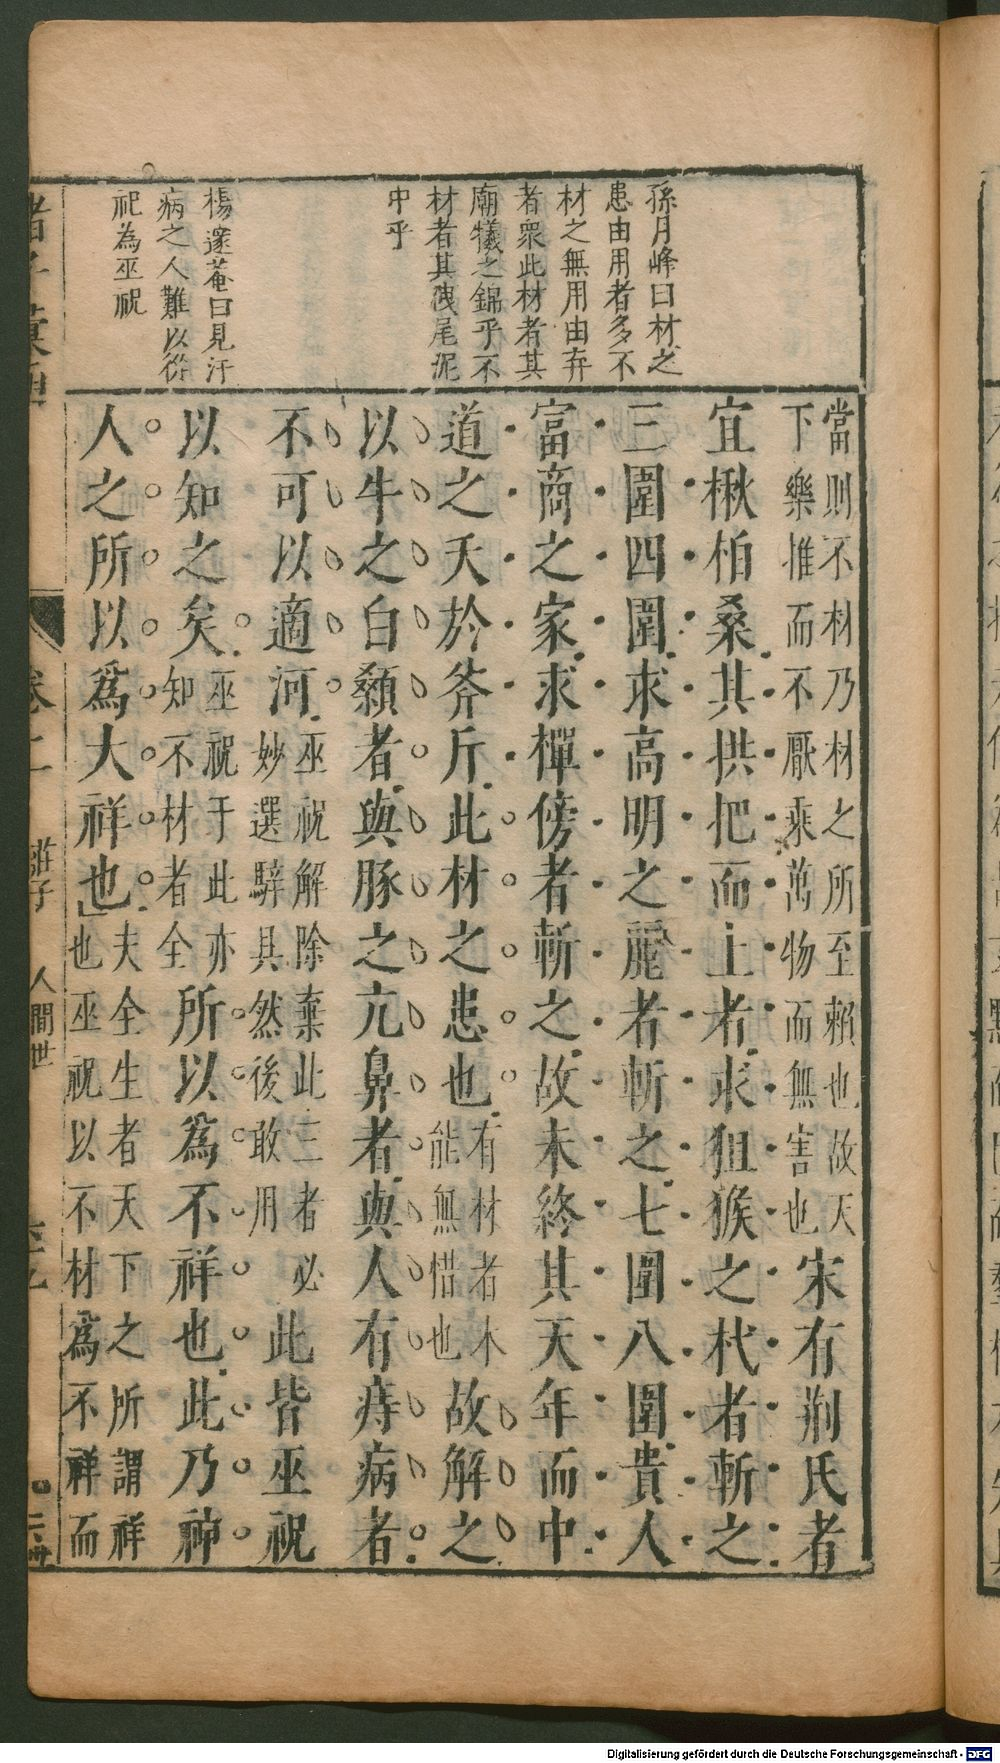 孫月峰曰材之
患由用者多不
材之無用由弃
者衆此材者其
廟犧之錦乎不
材者其洩尾泥
中乎
楊邃菴曰見汙
病之人難以從
祀為巫祝
當則不材乃材之所至賴也故天
下樂推而不厭乘萬物而無害也
宋有荊氏者
宜楸柏桑其拱把而上者求狙猴之杙者斬之
三圍四圍求高明之麗者斬之七圍八圍貴人
富商之家求樿傍者斬之故未終其天年而中
道之夭於斧斤此材之患也
有材者未
能無惜也
故解之
以牛之白顙者與豚之亢鼻者與人有痔病者
不可以適河
巫祝解除棄此三者必
妙選騂具然後敢用
此皆巫祝
以知之矣
巫祝于此亦
知不材者全
所以為不祥也此乃神
人之所以為大祥也
夫全生者天下之所謂祥
也巫祝以不材為不祥而
卷二
莊子
人間世
Digitalisierung gefördert durch die Deutsche Forschungsgemeinschaft - DFG